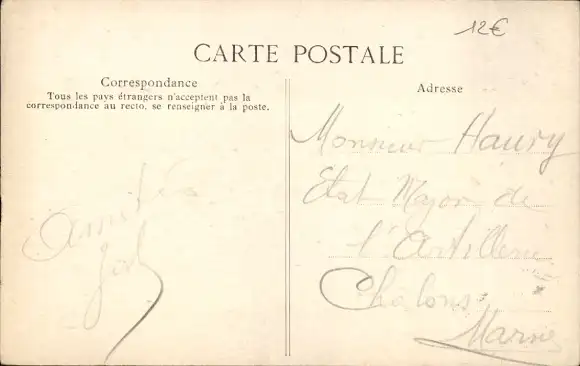 12€
CARTE POSTALE
Correspondance
Tous les pays étrangers n'acceptent pas la
correspondance au recto, se renseigner à la poste.
Amitiés
Adresse
Monsieur Haury
Etat Major de
l'Artillerie
Chalons
Marne